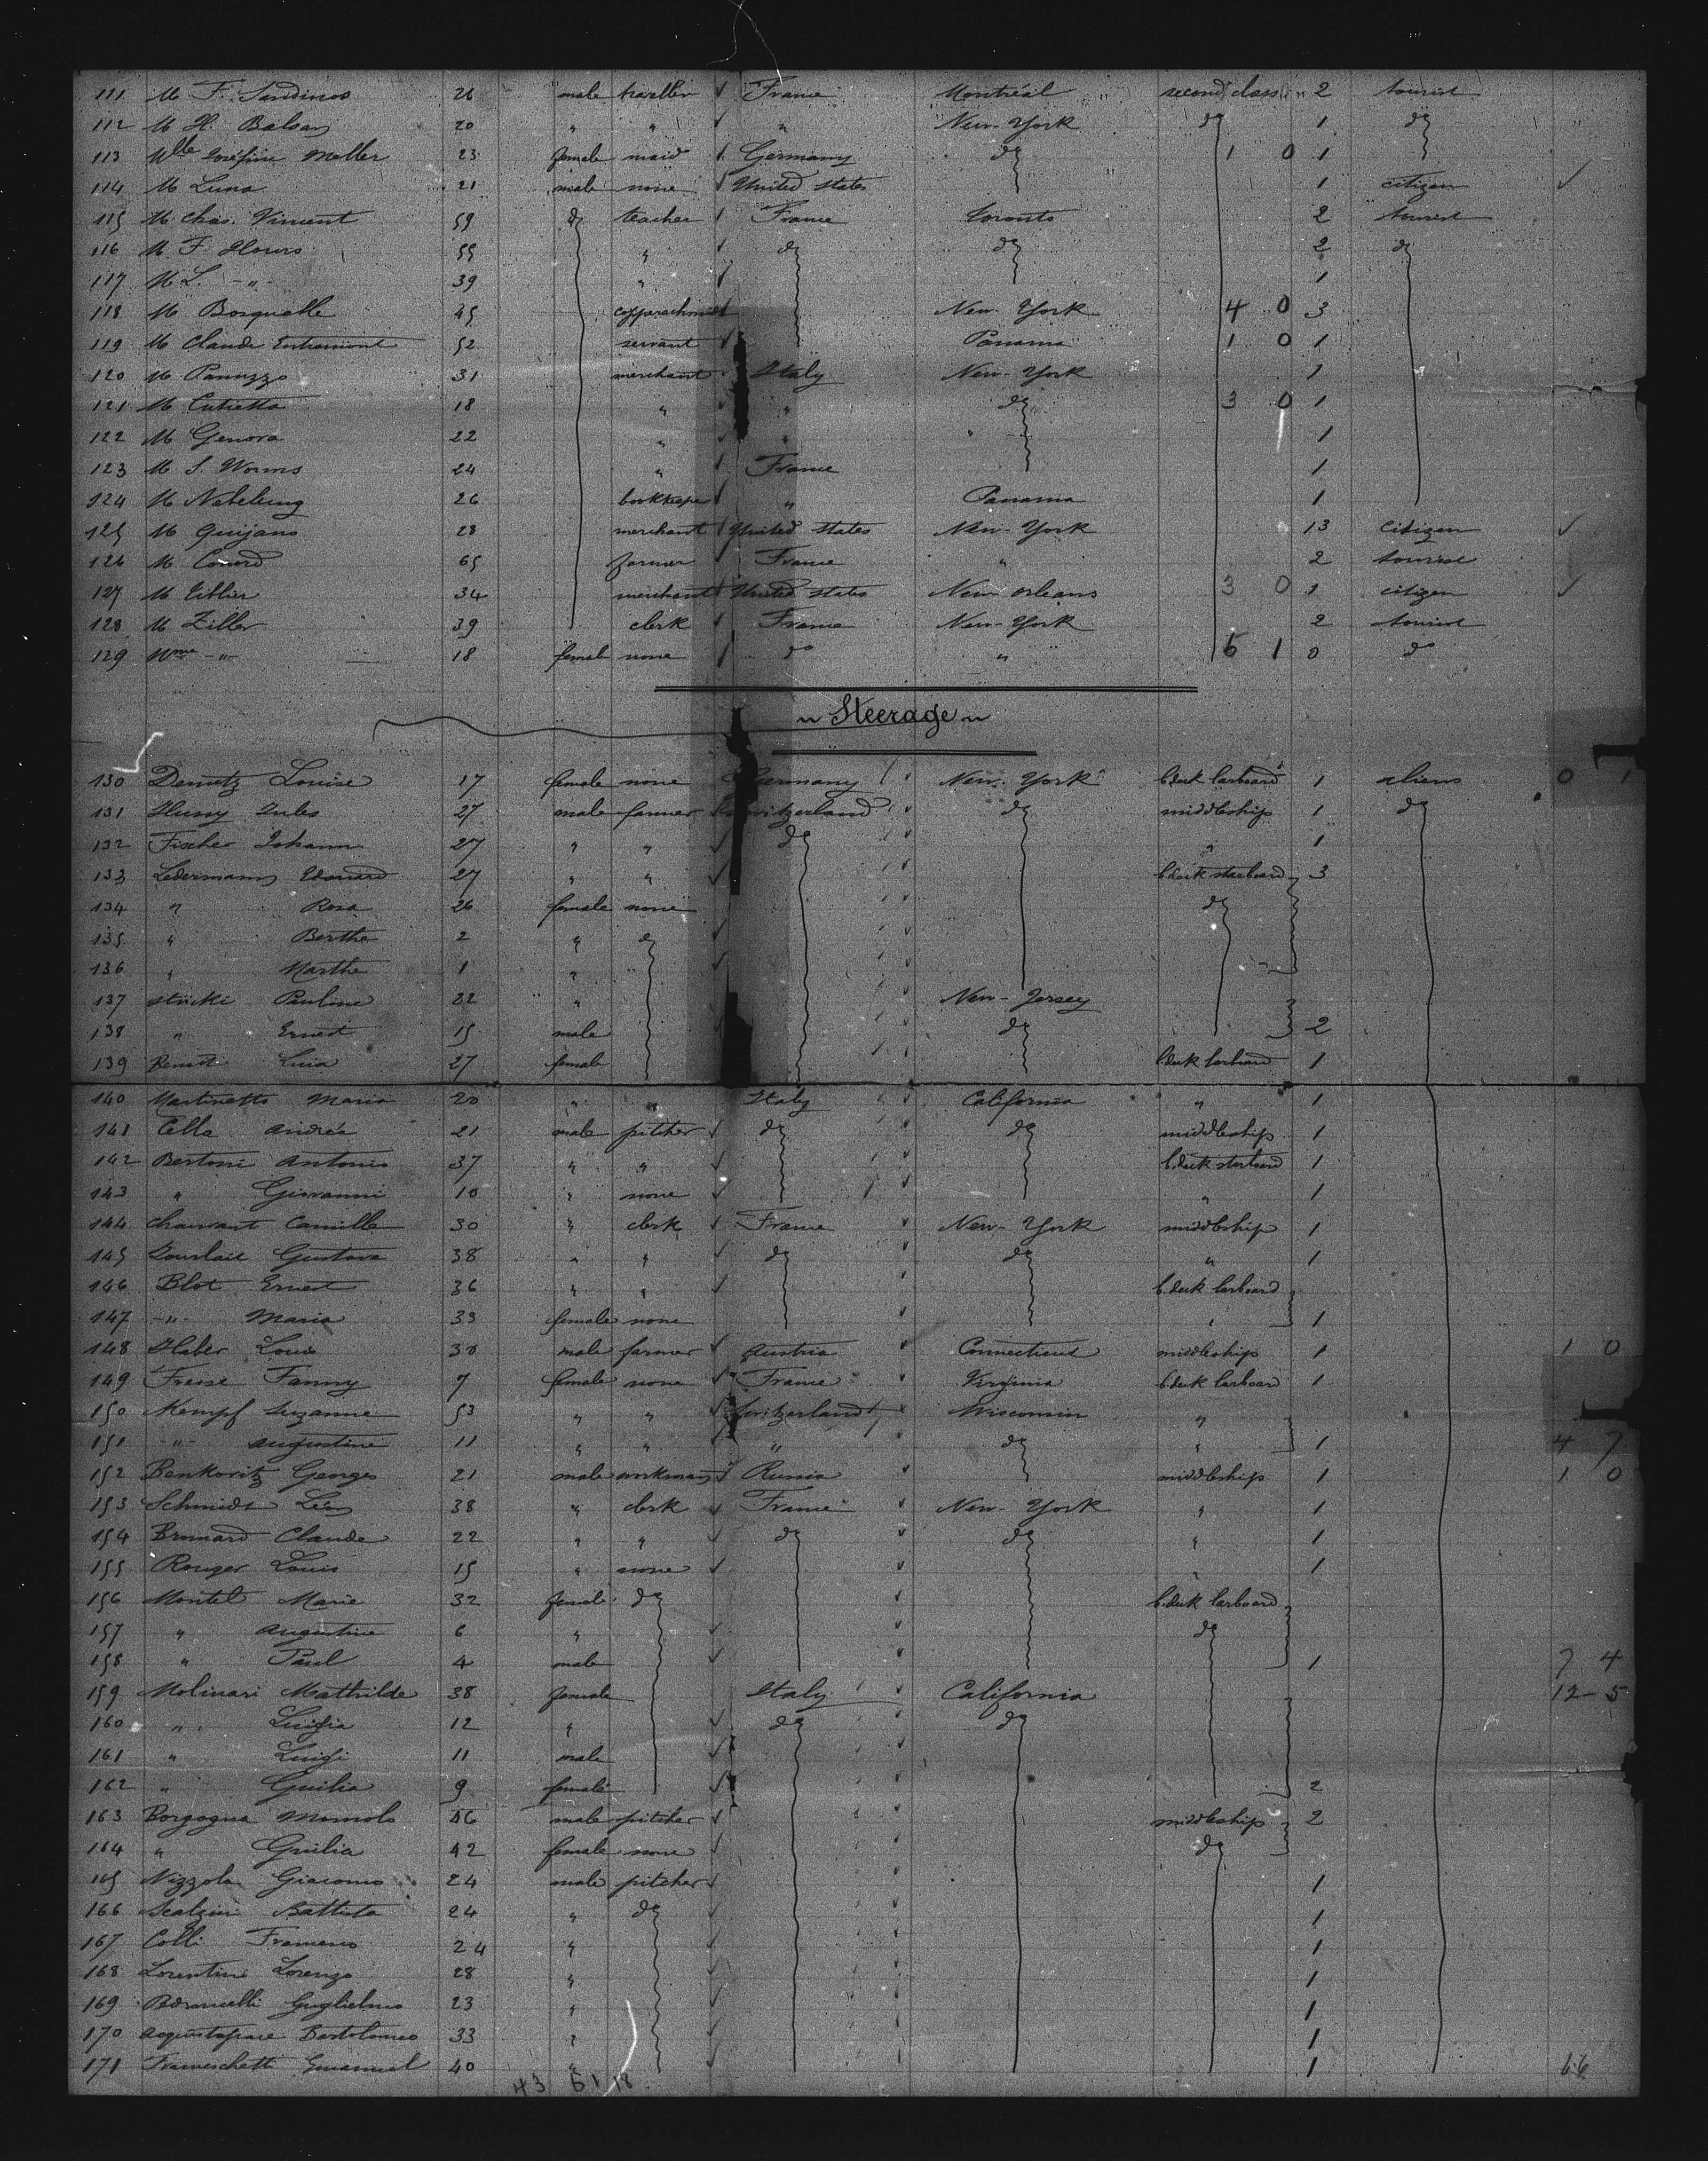 111 M F. Sandinos 26 male traveller ✓ France Montréal " second class " 2 tourist
112 M H. Balsan 20 " " ✓ " New-York do 1 do
113 Mlle Joséfine Moller 23 female maid Germany do 1 0 1
114 M Luna 21 male none ✓ United States 1 citizen ✓
115 M Chas. Vincent 59 do teacher France Toronto 2 tourist
116 M F. Hours 55 " do do 2 do
117 M L. -"- 39 " 1
118 M Bosquette 45 copperschmidt New-York 4 0 3
119 M Claude Entremont 52 servant Panama 1 0 1
120 M Panuzzo 31 merchant Italy New-York 1
121 M Cutietta 18 " " do 3 0 1
122 M Genova 22 " " " 1
123 M S. Worms 24 " France 1
124 M Nebelung 26 bookkeeper " Panama 1
125 M Quijano 28 merchant United States New-York 13 citizen ✓
126 M Conord 65 farmer France " 2 tourist
127 M 34 merchant United States New Orleans 3 0 1 citizen ✓
128 M Ziller 39 clerk France New-York 2 tourist
129 Mme -"- 18 female none do " 6 1 0 do
Steerage
130 Demutz Louise 17 female none Germany New-York b.deck larboard 1 aliens 0 1
131 Hussy Jules 27 male farmer Switzerland do middleship 1 do
132 Fischer Johann 27 " " do " 1
133 Ledermann Edouard 27 " " b.deck starboard 3
134 " Rosa 26 female none do
135 " Berthe 2 " do
136 " Marthe 1 "
137 Stücki Pauline 22 " New-Jersey
138 " Ernest 15 male do 2
139 Benoit 27 female b.deck larboard 1
140 Martinetto Maria 20 " " Italy California " 1
141 Cella Andréa 21 male pitcher do do middleship 1
142 Bertoni Antonio 37 " " b.deck starboard 1
143 " Giovanni 10 " none " 1
144 Chauvant Camille 30 " clerk France New-York middleship 1
145 Gustave 38 " " do do " 1
146 Blot Ernest 36 " " b.deck larboard
147 -"- Maria 33 female none " 1
148 Haber Louis 38 male farmer Austria Connecticut middleship 1 1 0
149 Fresse Fanny 7 female none France Virginia b.deck larboard 1
150 Kempf Suzanne 53 " " Switzerland Wisconsin "
151 -"- Augustine 11 " " " do " 1 4 7
152 Benkovitz Georges 21 male workman Russia middleship 1 1 0
153 Schmidt Léon 38 " clerk France New-York " 1
154 Bromard Claude 22 " " do do " 1
155 Rouger Louis 15 " none " 1
156 Montel Marie 32 female do b.deck larboard
157 " Augustine 6 " do
158 " Paul 4 male 1 7 4
159 Molinari Mathilde 38 female Italy California 12-5
160 " Luigia 12 " do do
161 " Luigi 11 male
162 " Guilia 9 female 2
163 Borgogna Momolo 46 male pitcher middleship 2
164 " Guilia 42 female none do
165 Nizzola Giacomo 24 male pitcher 1
166 Scalzini Battista 24 " do 1
167 Colli Francesco 24 " 1
168 Lorentini Lorenzo 28 " 1
169 Guglielmo 23 " 1
170 Acquistapace Bartolomeo 33 " 1
171 Franceschetti Emanuel 40 " 1 66
43 61 18